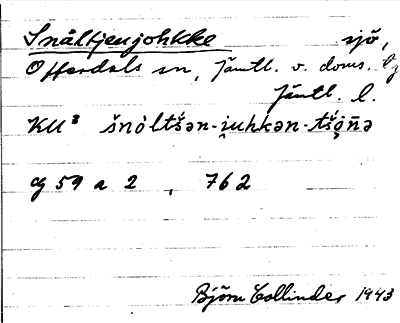 Snåltjenjohkke sjö,
Offerdals sn, Jämtl. v. doms. lg
Jämtl. l.
KU³ šnòltšən-i̯uhkən-tšǭn̄ə
cg 59 a 2, 762
Björn Collinder 1943